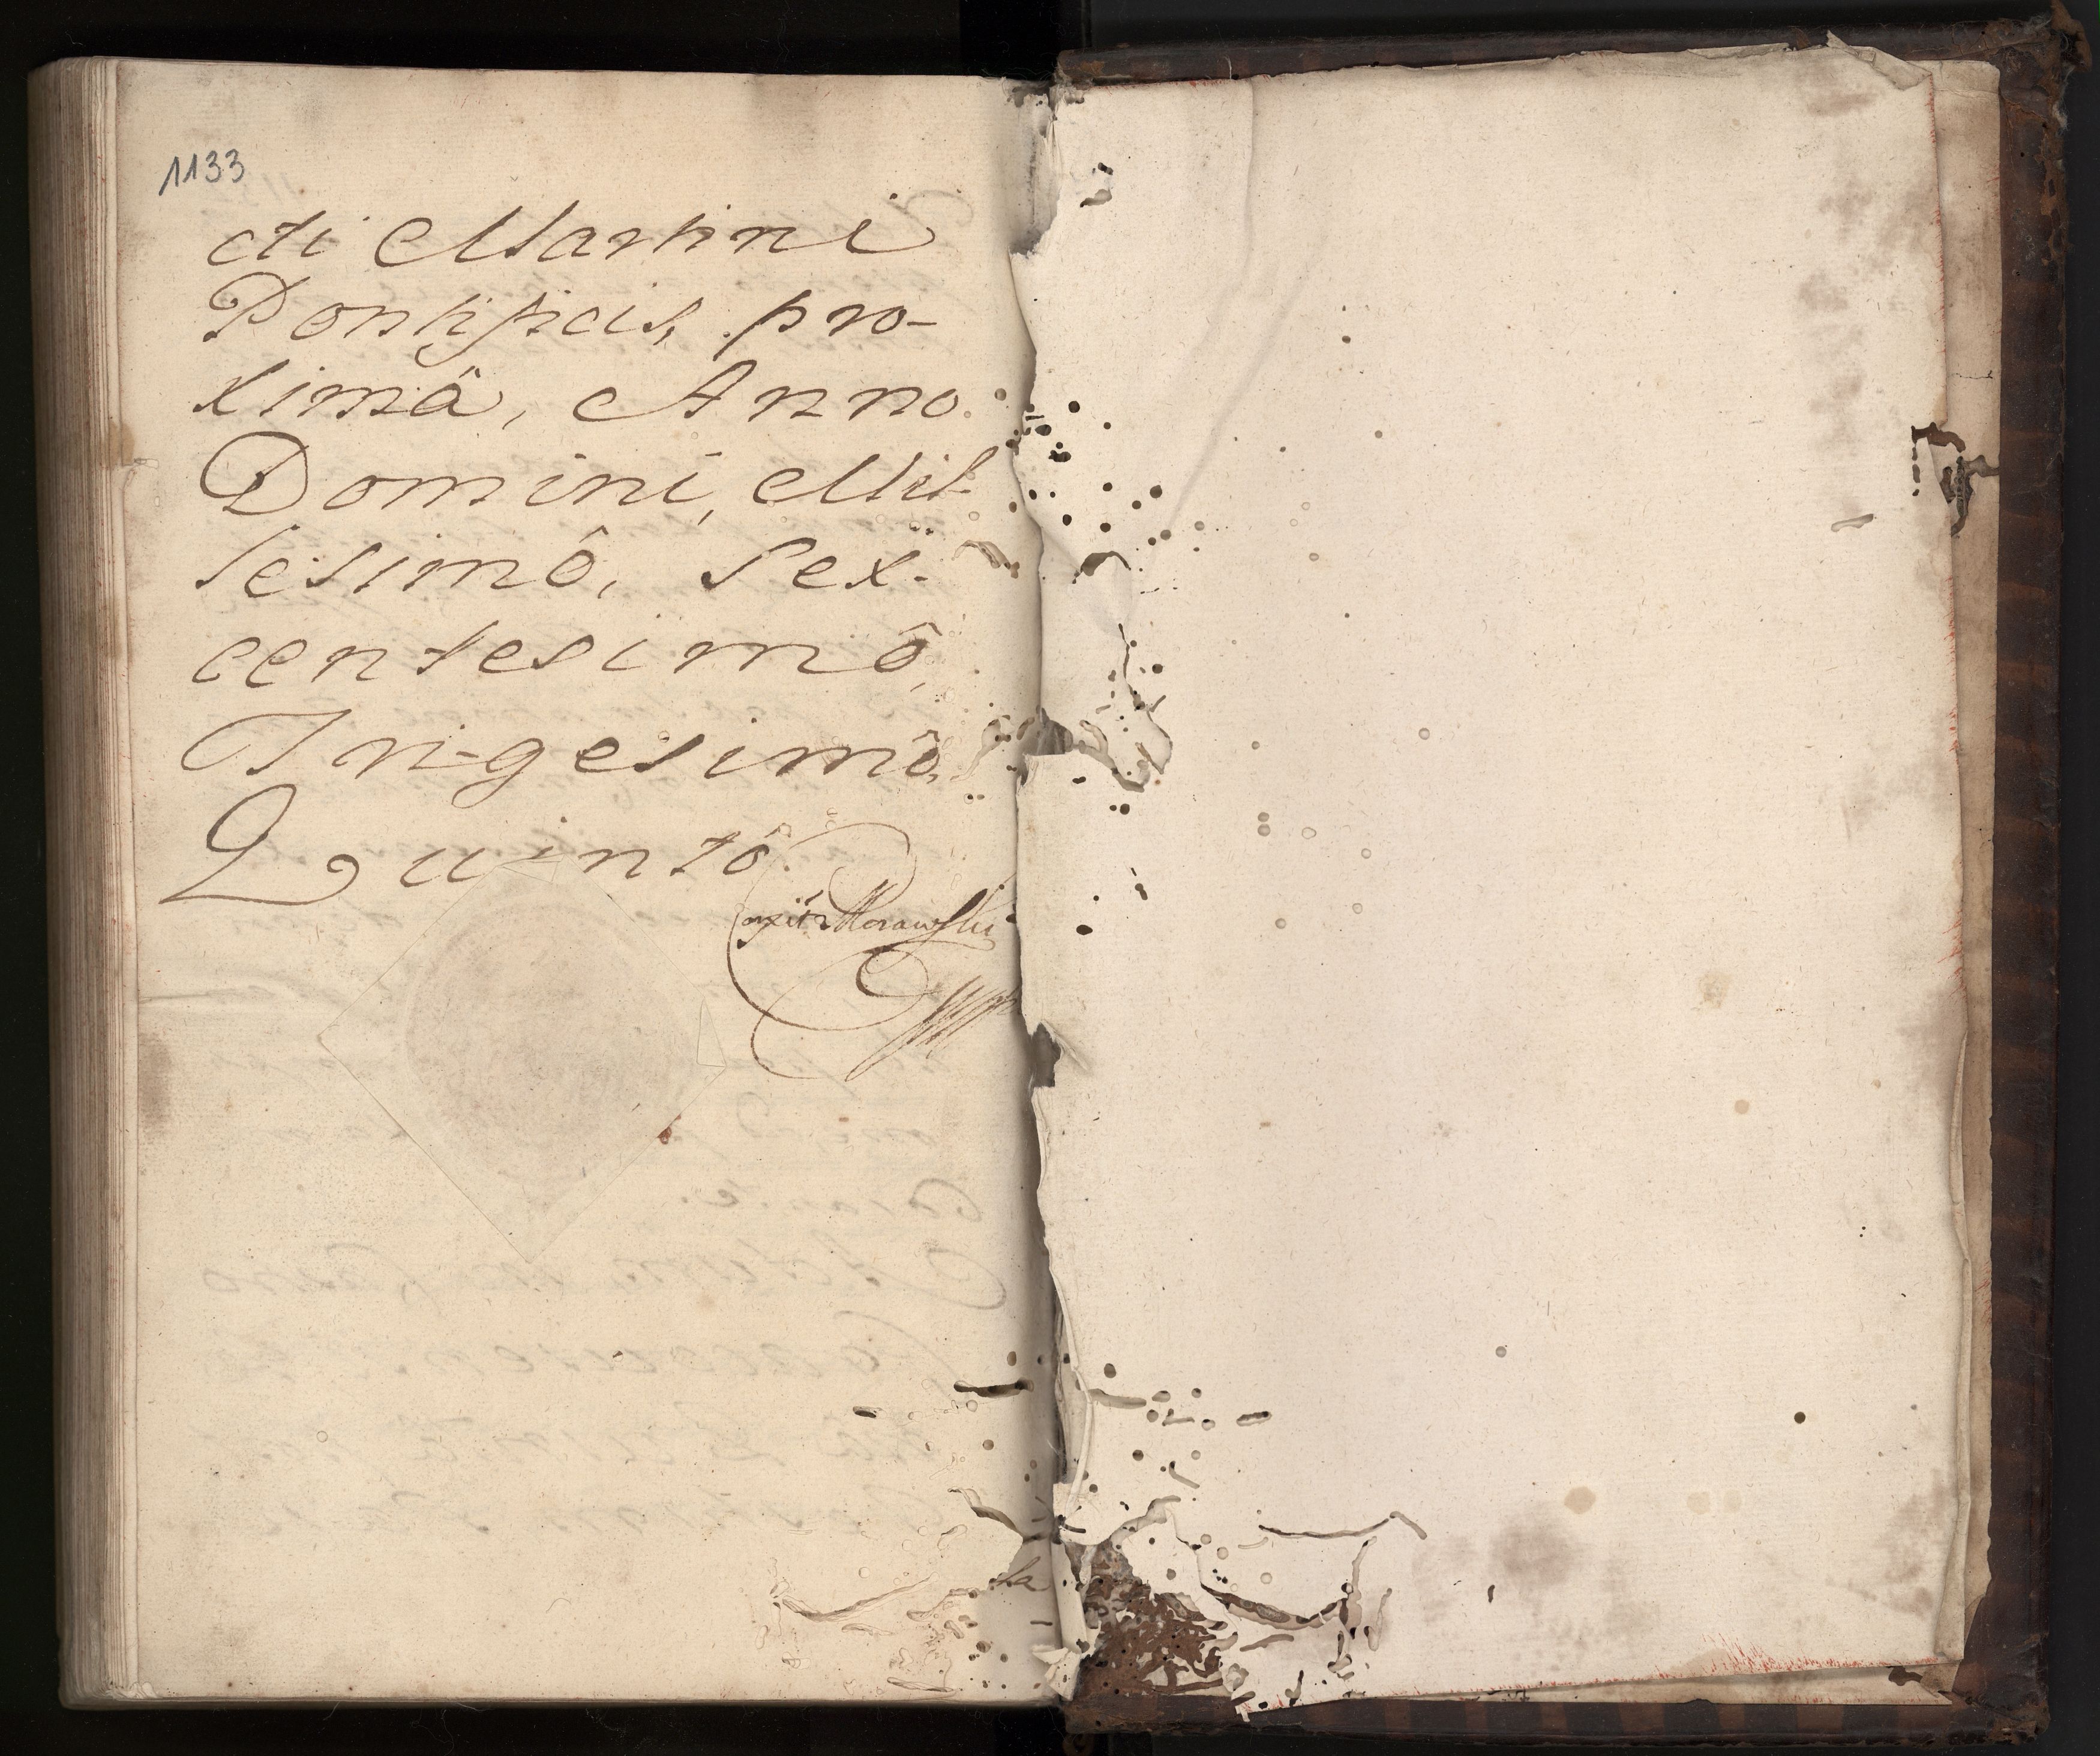 1133
cti Martini
Pontificis, pro-
ximâ, Anno
Domini, Mil-
lesimô, Sex-
centesimô,
Trigesimô,
Quintô.
Morawski